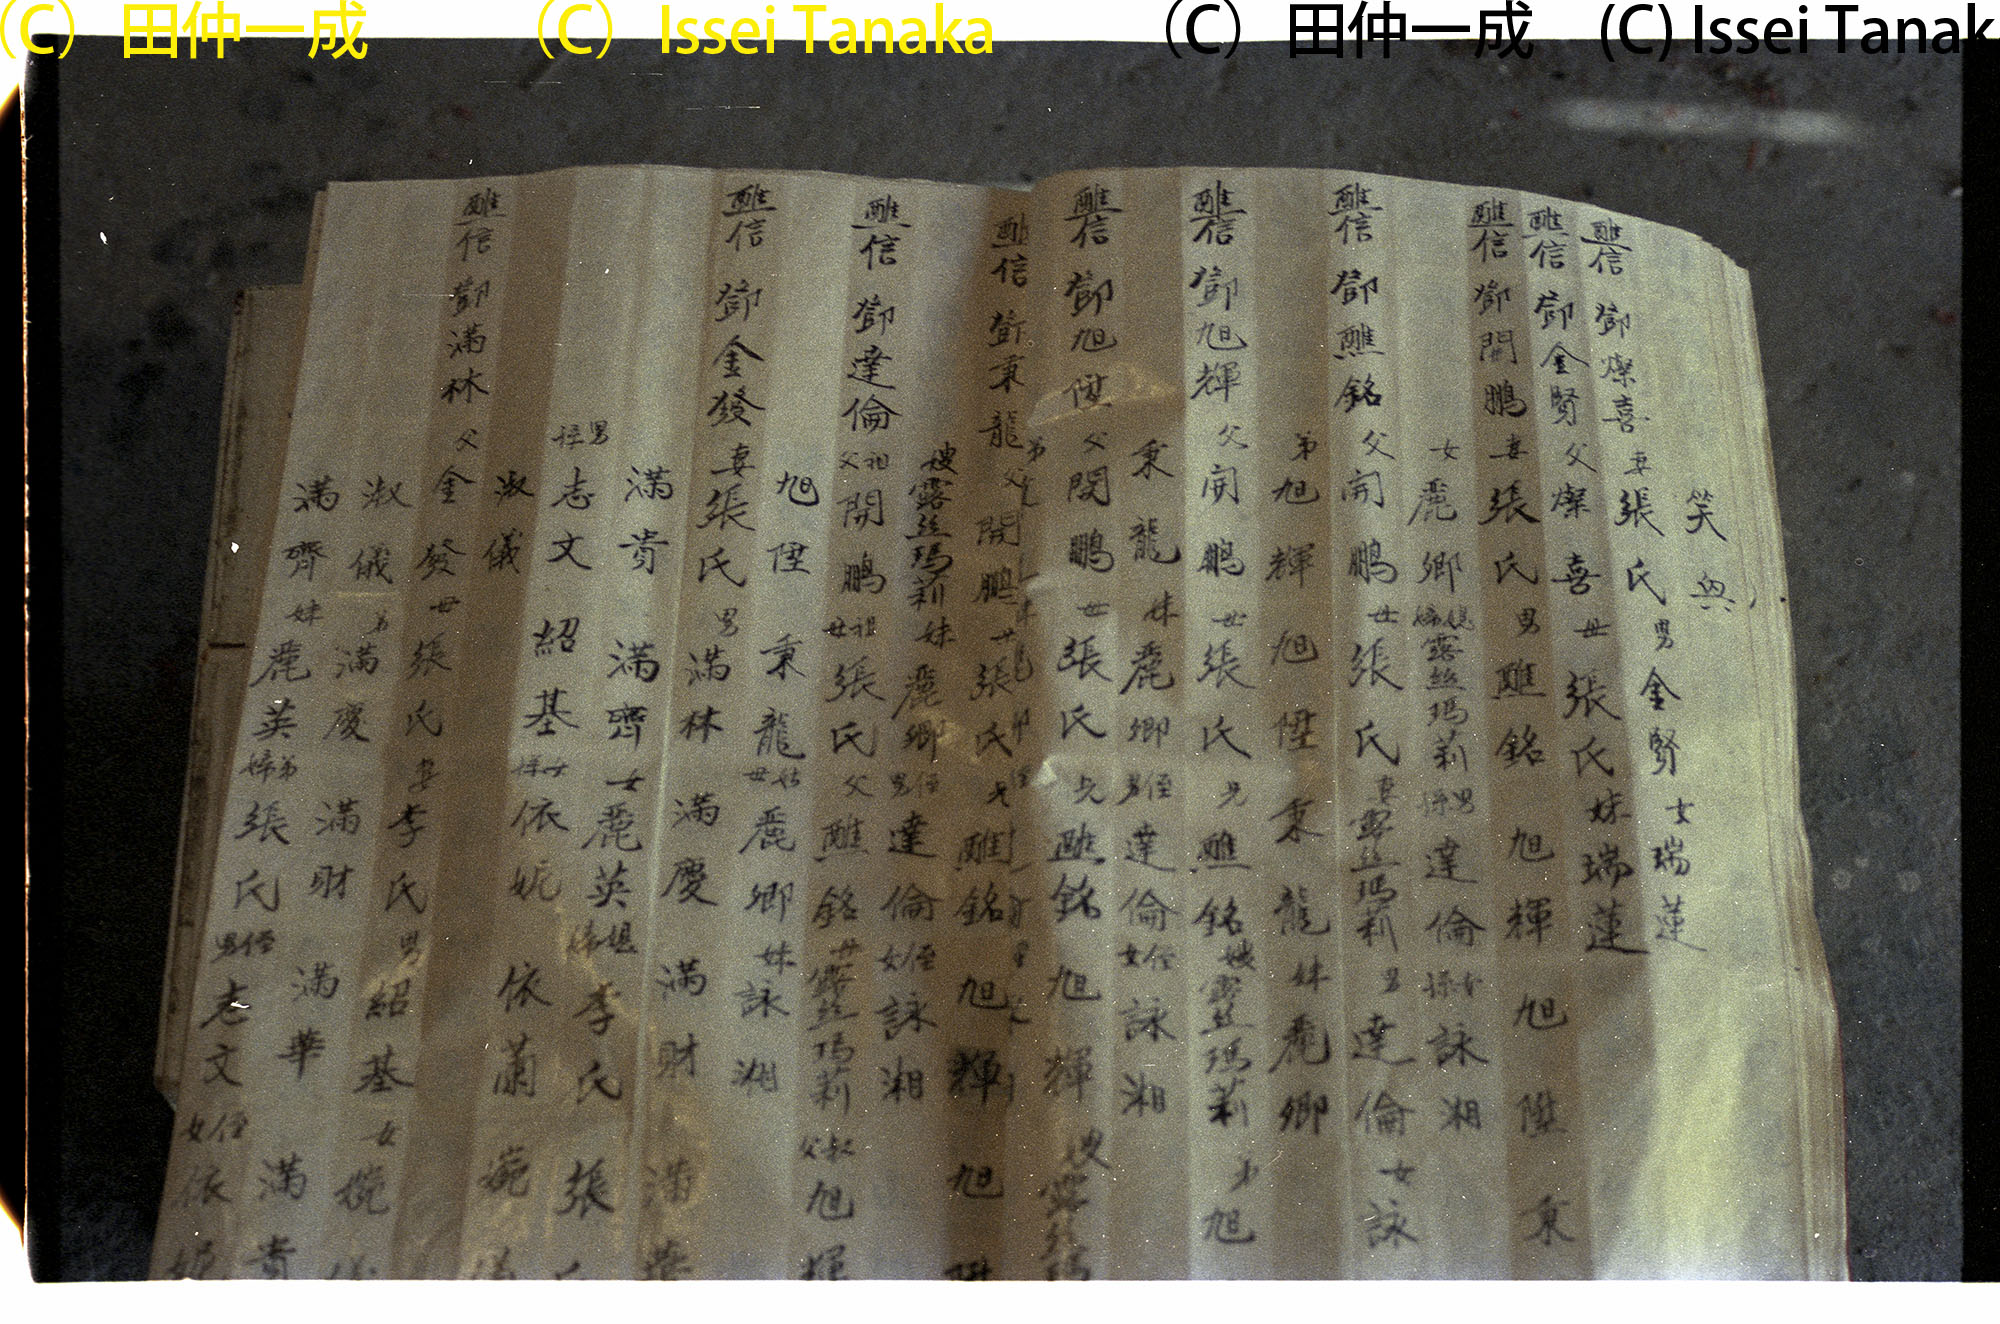 (C) 田仲一成 (C) Issei Tanaka (C) 田仲一成 (C) Issei Tanak
笑
醮信 鄧燦喜 妻 張氏 男 金賢 女 瑞蓮
醮信 鄧金賢 父 燦喜 母 張氏 妹 瑞蓮
醮信 鄧開鵬 妻 張氏 男 醮銘 旭輝 旭陞 秉
女 麗卿 媳婦 露丝瑪莉 男孫 達倫 女孫 詠湘
醮信 鄧醮銘 父 開鵬 母 張氏 妻 露丝瑪莉 男 達倫 女 詠
弟 旭輝 旭陞 秉龍 妹 麗卿
醮信 鄧旭輝 父 開鵬 母 張氏 兄 醮銘 嫂 露丝瑪莉 弟 旭
秉龍 妹 麗卿 男侄 達倫 女侄 詠湘
醮信 鄧旭陞 父 開鵬 母 張氏 兄 醮銘 旭輝 嫂 露丝瑪
醮信 鄧秉龍 父 開鵬 母 張氏 兄 醮銘 旭輝 旭陞
嫂 露丝瑪莉 妹 麗卿 男侄 達倫 女侄 詠湘
醮信 鄧達倫 祖父 開鵬 祖母 張氏 父 醮銘 母 露丝瑪莉 叔父 旭輝
旭陞 秉龍 姑母 麗卿 妹 詠湘
醮信 鄧金發 妻 張氏 男 滿林 滿慶 滿財 滿華
滿貴 滿齊 女 麗英 媳婦 李氏 張氏
男孫 志文 紹基 女孫 依妮 依蘭 婉
淑儀
醮信 鄧滿林 父 金發 母 張氏 妻 李氏 男 紹基 女 婉儀
淑儀 弟 滿慶 滿財 滿華 滿貴
滿齊 妹 麗英 弟婦 張氏 男侄 志文 女侄 依妮